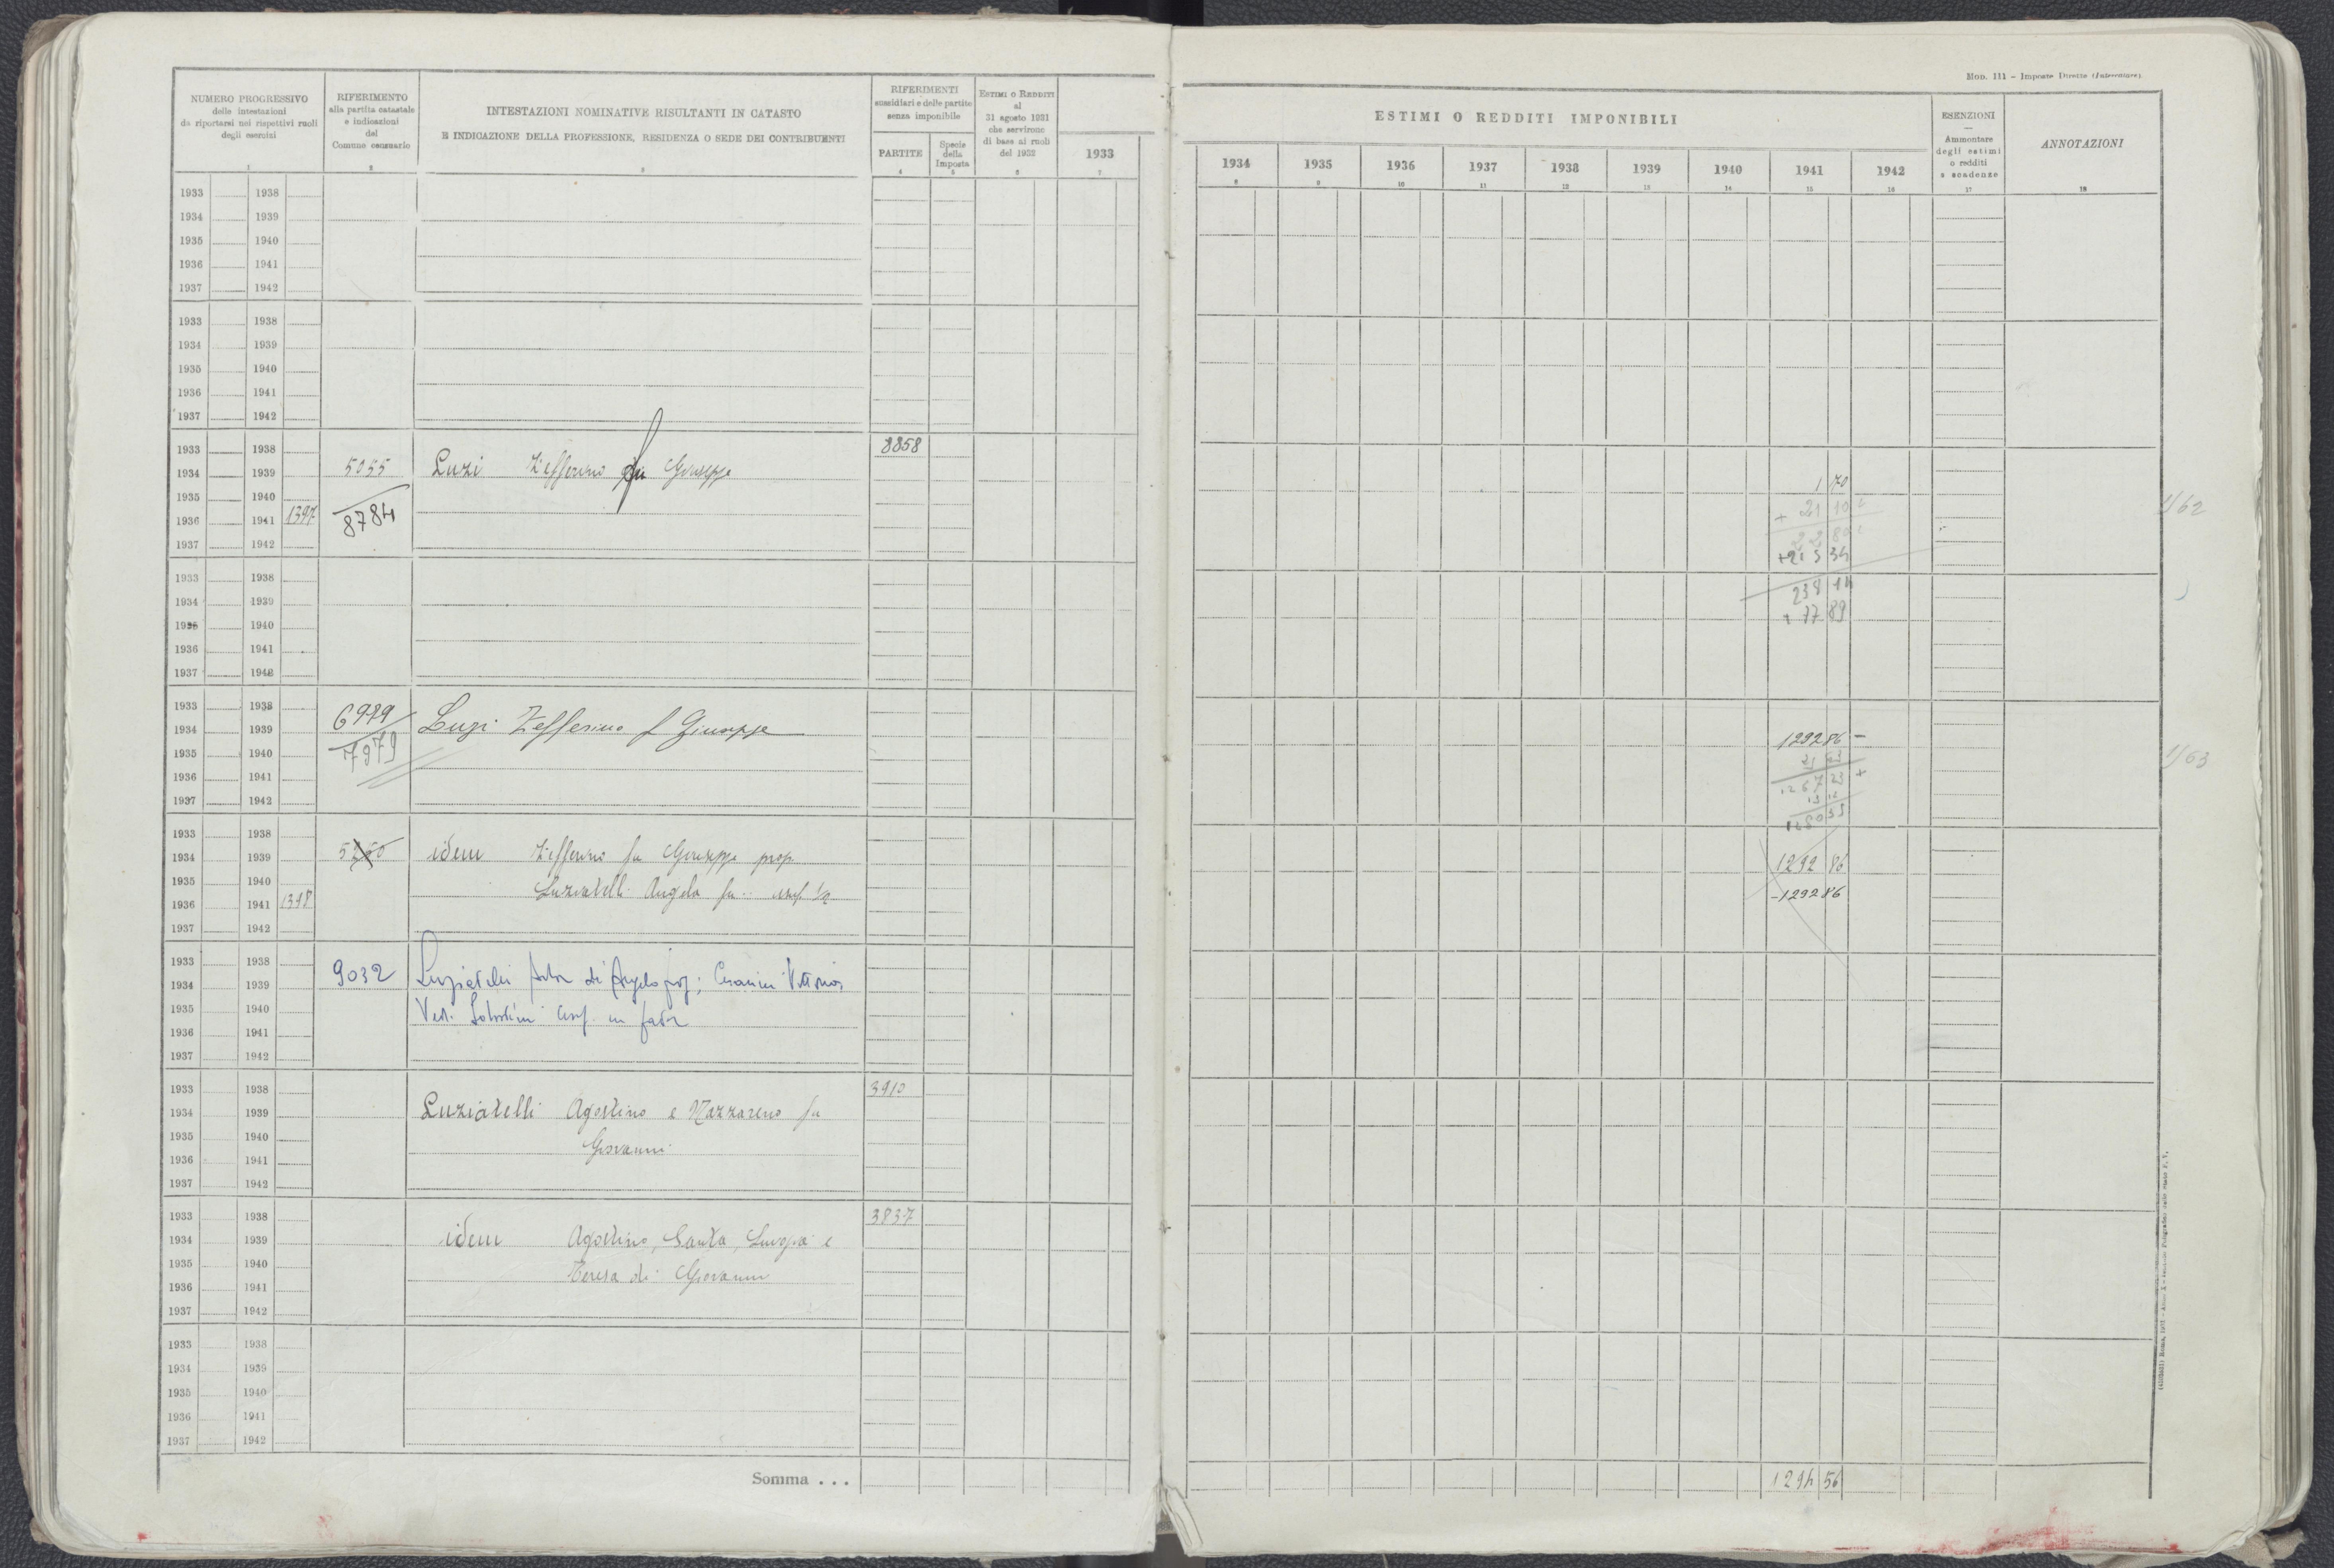 MOD. 111 – Imposte Dirette (Intercalare).
NUMERO PROGRESSIVO
delle intestazioni
da riportarsi nei rispettivi ruoli
degli esercizi
1
RIFERIMENTO
alla partita catastale
e indicazioni
del
Comune censuario
2
INTESTAZIONI NOMINATIVE RISULTANTI IN CATASTO
E INDICAZIONE DELLA PROFESSIONE, RESIDENZA O SEDE DEI CONTRIBUENTI
3
RIFERIMENTI
sussidiari e delle partite
senza imponibile
PARTITE
4
Specie
della
Imposta
5
ESTIMI O REDDITI
al
31 agosto 1931
che servirono
di base ai ruoli
del 1932
6
1933
7
ESTIMI O REDDITI IMPONIBILI
1934 1935 1936 1937 1938 1939 1940 1941 1942
8 9 10 11 12 13 14 15 16
ESENZIONI
—
Ammontare
degli estimi
o redditi
e scadenze
17
ANNOTAZIONI
18
1933 1938
1934 1939
1935 1940
1936 1941
1937 1942
1933 1938
1934 1939
1935 1940
1936 1941
1937 1942
1933 1938 8858
1934 1939 5055 Luzi Zefferino fu Giuseppe
1935 1940 1 70
1936 1941 1397 8784 + 21 10
1937 1942 22 80
+ 215 34
1933 1938 238 14
1934 1939 77 89
1935 1940
1936 1941
1937 1942
1933 1938
1934 1939 Luzi Zefferino f Giuseppe 1292 86 –
1935 1940 7979
1936 1941 1267 23 +
1937 1942
1933 1938
1934 1939 5260 idem Zefferino fu Giuseppe prop. 1292 86
1935 1940 Luziatelli Angela fu usuf. 1/2 – 1292 86
1936 1941 1398
1937 1942
1933 1938
1934 1939 9032 Luziatelli di Angelo prop; Vittoria
1935 1940 Ved. usuf. in
1936 1941
1937 1942
1933 1938 3910
1934 1939 Luziatelli Agostino e Nazzareno fu
1935 1940 Giovanni
1936 1941
1937 1942
1933 1938 3837
1934 1939 idem Agostino, Santa, e
1935 1940 Teresa di Giovanni
1936 1941
1937 1942
1933 1938
1934 1939
1935 1940
1936 1941
1937 1942
Somma . . . 1294 56
1/62
1/63